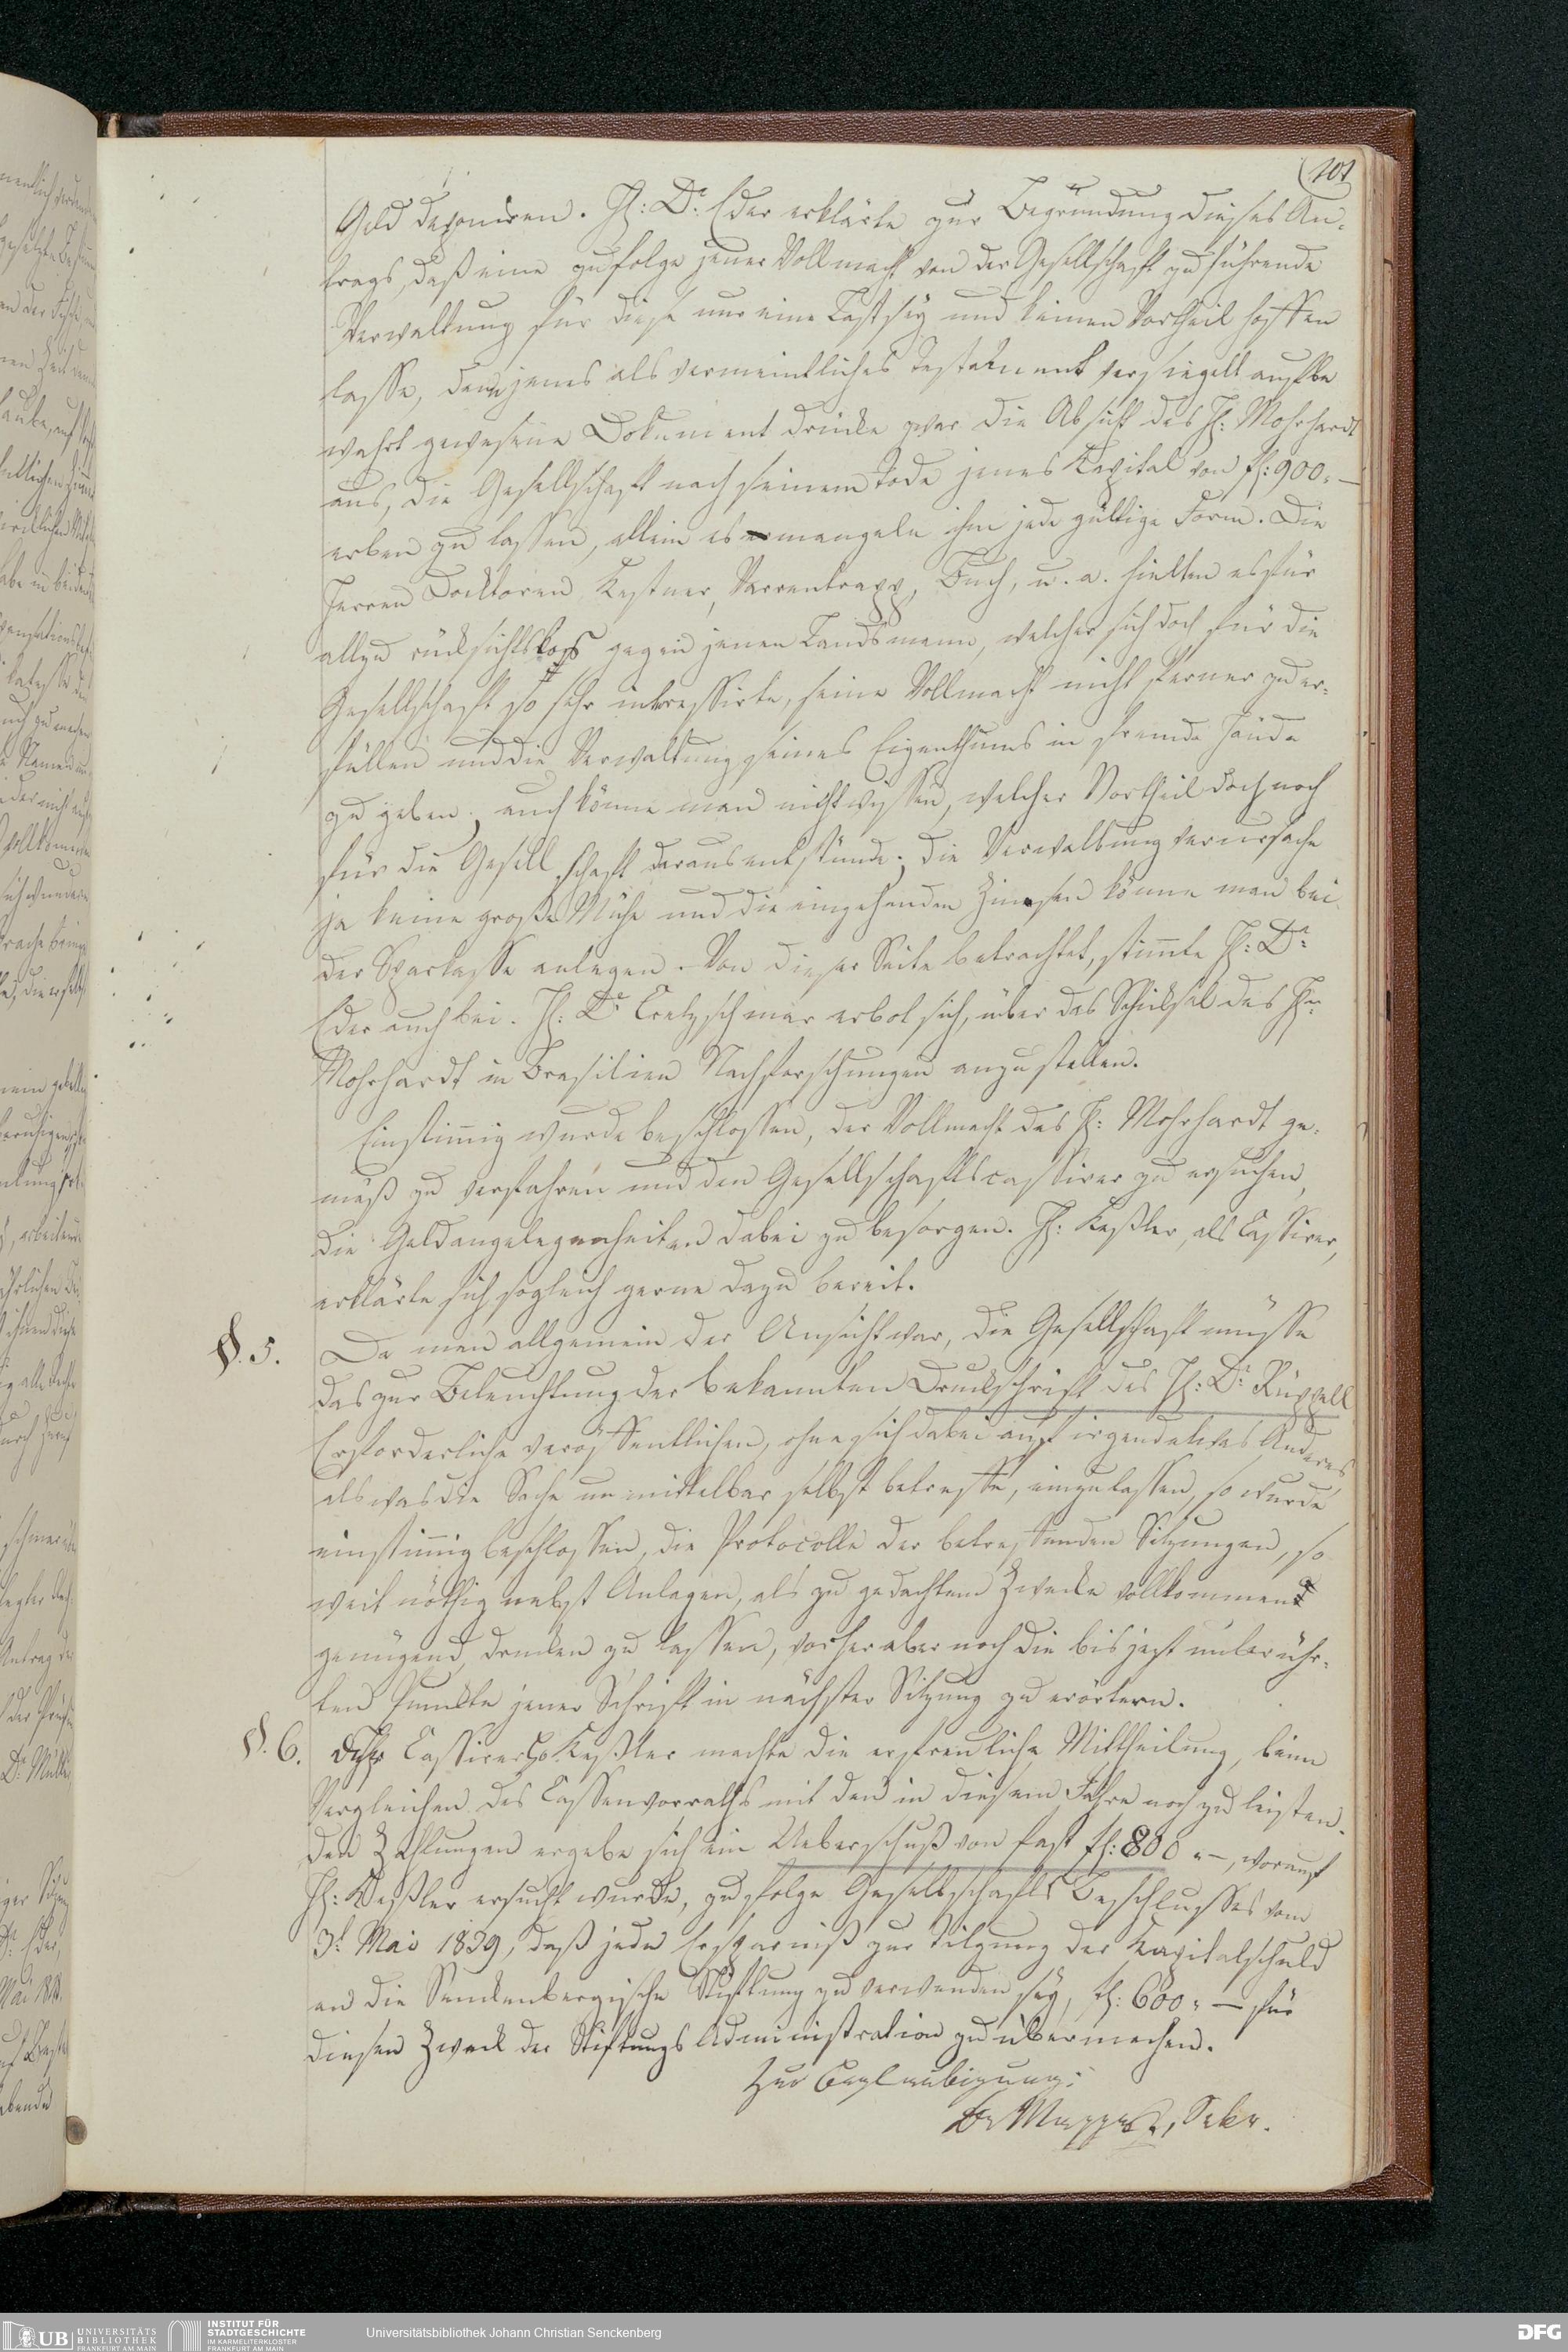 101
Geld deponiren. H: Dr: Eder erklärte zur Begründung dieses An-
trags, daß eine zufolge jener Vollmacht von der Gesellschaft zu führende
Verwaltung für diese nur eine Last sey und keinen Vortheil hoffen
lasse, denn jenes als vermeintliches Testament versiegelt aufbe
wahrt gewesene Dokument drücke zwar die Absicht des H: Mohrhardt
aus, die Gesellschaft nach seinem Tode jenes Kapital von fl: 900 „ —
erben zu lassen, allein es mangele ihm jede gültige Form. Die
Herren Docktoren Kestner, Varrentrapp, Fuch, u. a. hielten es für
allzu rücksichtslos gegen jenen Landsmann, welcher sich doch für die
Gesellschaft so sehr interessirte, seine Vollmacht nicht ferner zu er-
füllen und die Verwaltung seines Eigenthums in fremde Hände
zu geben; auch könne man nicht wissen, welcher Vortheil doch noch
für die Gesellschaft daraus entstünde. Die Verwaltung verursache
ja keine große Mühe und die eingehenden Zinsen könne man bei
der Sparkasse anlegen. Von dieser Seite betrachtet, stimte H: Dr:
Eder auch bei. H: Dr Cretzschmar erbot sich, über das Schicksal des Hrn
Mohrhardt in Brasilien Nachforschungen anzustellen.
Einstimig wurde beschlossen, der Vollmacht des H: Mohrhardt ge-
mäß zu verfahren und den Gesellschaftscassirer zu ersuchen,
die Geldangelegenheiten dabei zu besorgen. H: Keßler, als Cassirer,
erklärte sich sogleich gerne dazu bereit.
§. 5. Da man allgemein der Ansicht war, die Gesellschaft müsse
das zur Beleuchtung der bekannten Druckschrift des H: Dr: Rüppell
Erforderliche veröffentlichen, ohne sich dabei auf irgend etwas Anderes,
als was die Sache unmittelbar selbst betreffe, einzulassen, so wurde
einstimig beschlossen, die Protocolle der betreffenden Sitzungen, so
weit nöthig nebst Anlagen, als zu gedachtem Zwecke vollkommen
genügend, drucken zu lassen, vorher aber noch die bis jetzt unberühr-
ten Punkte jener Schrift in nächster Sitzung zu erörtern.
§. 6. Cassirer H: Keßler machte die erfreuliche Mittheilung, beim
Vergleichen des Cassenvorraths mit den in diesem Jahre noch zu leisten-
den Zahlungen ergebe sich ein Ueberschuß von fast fl: 800 „ —, worauf
H: Keßler ersucht wurde, zufolge Gesellschafts Beschlusses vom
3t Mai 1839, daß jede Ersparniß zur Tilgung der Kapitalschuld
an die Senckenbergische Stiftung zu verwenden sey, fl: 600 „ — für
diesen Zweck der Stiftungs Administration zu übermachen.
Zur Beglaubigung:
Dr Mappes, Sekr.
UB UNIVERSITÄTS
BIBLIOTHEK
FRANKFURT AM MAIN
INSTITUT FÜR
STADTGESCHICHTE
IM KARMELITERKLOSTER
FRANKFURT AM MAIN
Universitätsbibliothek Johann Christian Senckenberg
DFG